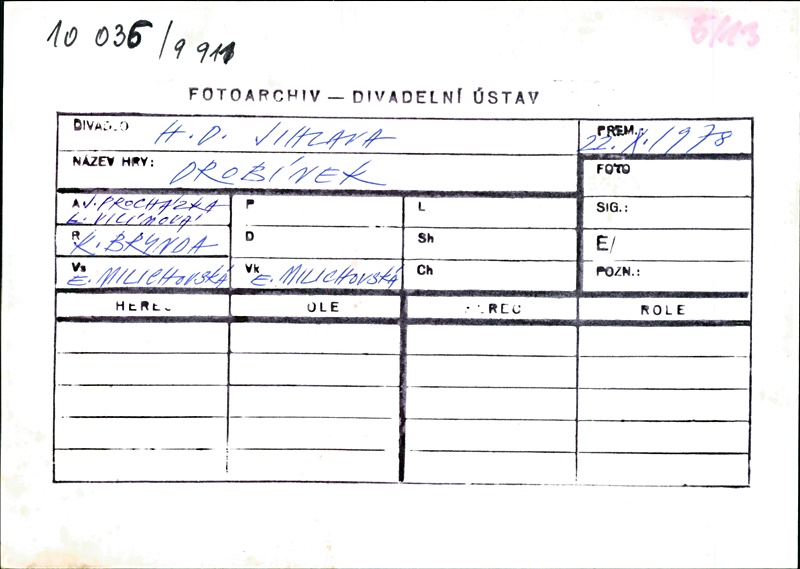 10 036/9 911
5/113
FOTOARCHIV — DIVADELNÍ ÚSTAV
DIVADLO H.D. JIHLAVA
PREM. 22. X. 1978
NÁZEV HRY: DROBÍNEK
FOTO
A V. PROCHÁZKA
L. VILÍMOVÁ
P
L
SIG.:
R K. BRYNDA
D
Sh
Č/
Vs E. MILICHOVSKÁ
Vk E. MILICHOVSKÁ
Ch
POZN.:
HEREC ROLE HEREC ROLE